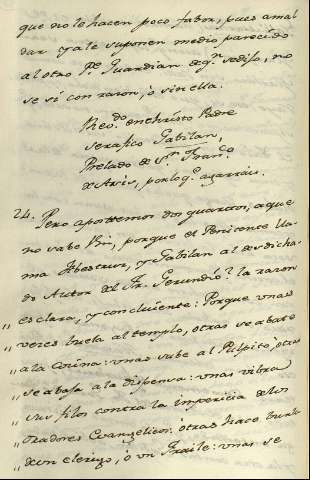 que no le hacen poco fabor, pues amal
dar ya le suponen medio parecido
al otro Pe. Guardian de qn. se dijo, no
se si con razon, ò sin ella.
Revdo. en Christo Padre
Serafico Gabilan,
Prelado de Sn. Franco.
de Avis, por lo q. agarrais.
24. Pero apostemos dos quartos, a que
no sabe Vm. porque el Penitente lla-
ma Abestruz, y Gabilan al desdicha-
do Autor del Fr. Gerundio? la razon
,, es clara, y concluiente: Porque unas
,, veces buela al templo, otras se abate
,, a la Cocina: unas sube al Pulpito, otras
,, se abaja a la Dispensa: unas vibra
,, sus filos contra la impericia de los
,, Oradores Evangelicos: otras hace burla
,, de un clerigo, ò un Fraile: unas se